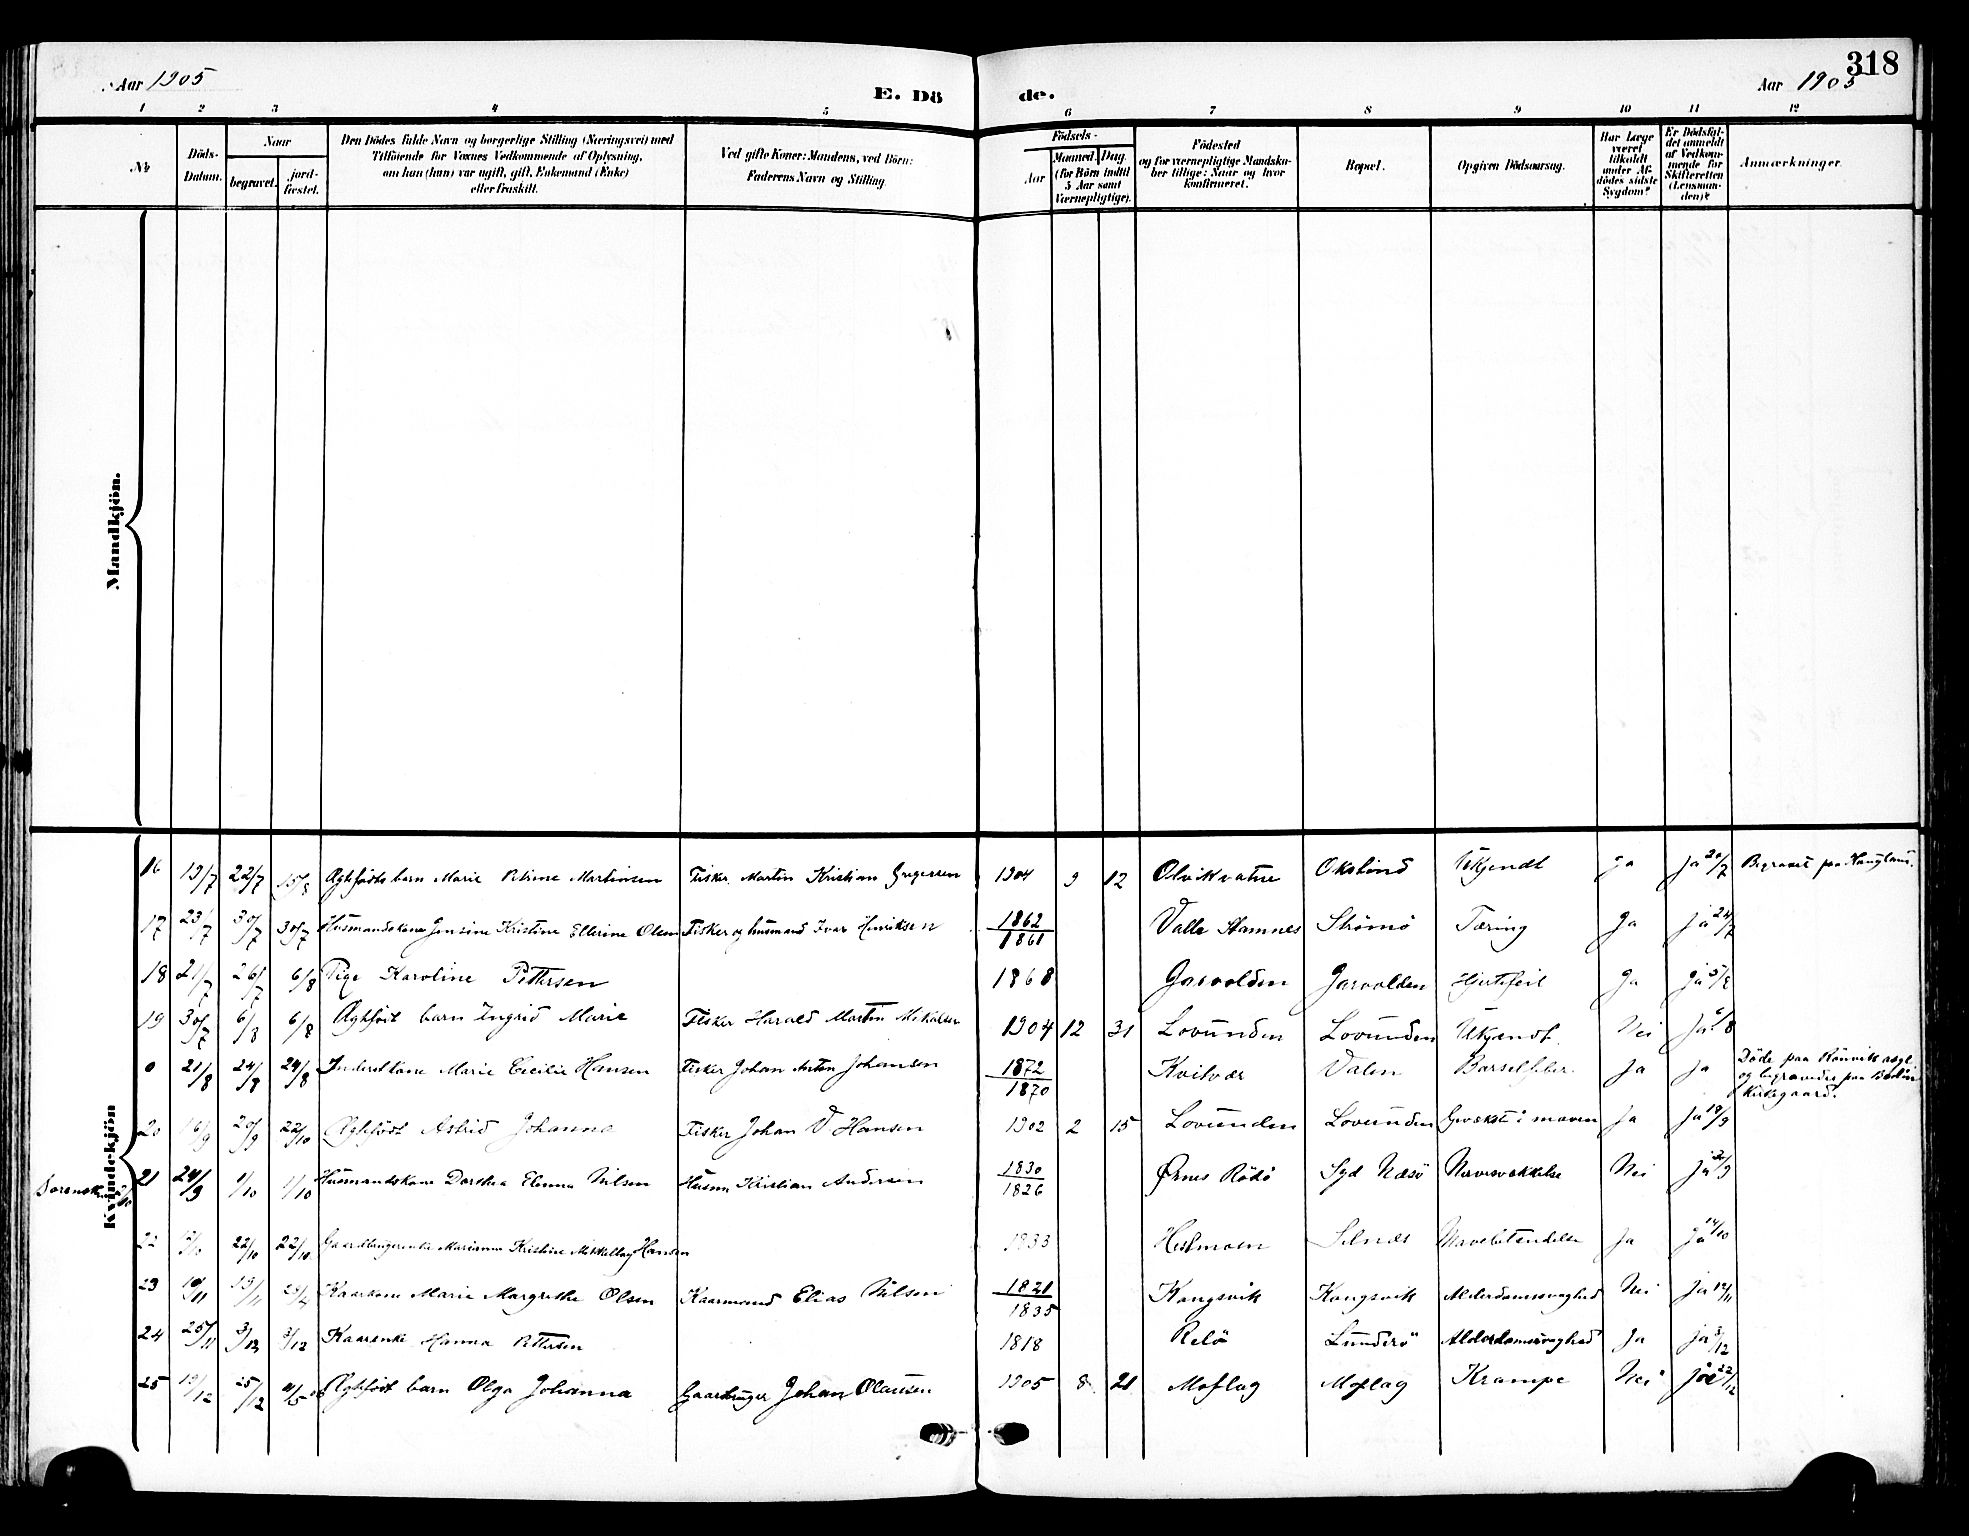 318
Aar 1905
E. Dö de.
Aar 1905
1 2 3 4 5 6 7 8 9 10 11 12
No
Döds-Datum.
Naar
begravet.
jord-fæstet.
Den Dödes fulde Navn og borgerlige Stilling (Næringsvei) med
Tilföiende for Voxnes Vedkommende af Oplysning,
om han (hun) var ugift, gift, Enkemand (Enke)
eller fraskilt.
Ved gifte Koner: Mandens, ved Börn:
Faderens Navn og Stilling
Födsels-
Aar
Maaned. Dag.
(for Börn indtil
5 Aar samt
Værnepligtige).
Födested
og for værnepligtige Mandska-
ber tillige: Naar og hvor
konfirmeret.
Bopæl.
Opgiven Dödsaarsag.
Har Læge
været
tilkaldt
under Af-
dödes sidste
Sygdom?
Er Dödsfal-
det anmeldt
af Vedkom-
mende for
Skifteretten
(Lensman-
den)?
Anmærkninger.
Mandkjön.
Kvindekjön
16 19/7 22/7 15/8 Ægtefødt barn Marie Petrine Martinsen Fisker Martin Kristian Gregersen 1904 9 12 Olvikvatne Okstind Ukjendt Ja Ja 20/7 Begravet paa
17 23/7 30/7 30/7 Husmandskone Jensine Kristine Ellerine Olsen Fisker og husmand Ivar Henriksen 1862/1861 Valle Stamnes Strømø Tæring Ja Ja 24/7
18 21/7 26/7 6/8 Pige Karoline Pettersen 1868 Gasvolden Gasvolden Hjertefeil Ja Ja 5/8
19 30/7 6/8 6/8 Ægtefødt barn Ingrid Marie Fisker Harald Martin Mikalsen 1904 12 31 Lovunden Lovunden Ukjendt Nei Ja 6/8
0 21/8 24/8 24/8 Inderstkone Marie Cecilie Hansen Fisker Johan Anton Johansen 1872/1870 Kvitvær Valen Barselfeber Ja Ja Døde paa Rønvik asyl
og begravedes paa Bodin
Kirkegaard.
20 16/9 20/9 22/10 Ægtefødt Astrid Johanna Fisker Johan V Hansen 1902 2 15 Lovunden Lovunden Gevækst i maven Ja Ja 19/9
21 24/9 1/10 1/10 Husmandskone Dorthea Elenna Nilsen Husm Kristian Andersen 1830/1826 Ørnes Rødø Syd Næsø Nervesvækkelse Nei Ja
22 22/10 22/10 Gaardbrugerenke Marianna Kristine Mikkelborg Hansen 1833 Selnæs Mavebetændelse Ja Ja 14/10
23 10/11 19/11 Kaarkone Marie Margrethe Olsen Kaarmand Elias Nilsen 1821/1835 Kongsvik Kongsvik Alderdomssvaghed Nei Ja 12/11
24 25/11 3/12 3/12 Kaarenke Hanna Pettersen 1818 Relø Lunderö Alderdomssvaghed Ja Ja 3/12
25 19/12 25/12 Ægtefødt barn Olga Johanna Gaardbruger Johan Olausen 1905 8 21 Moflag Moflag Krampe Nei Ja 22/12